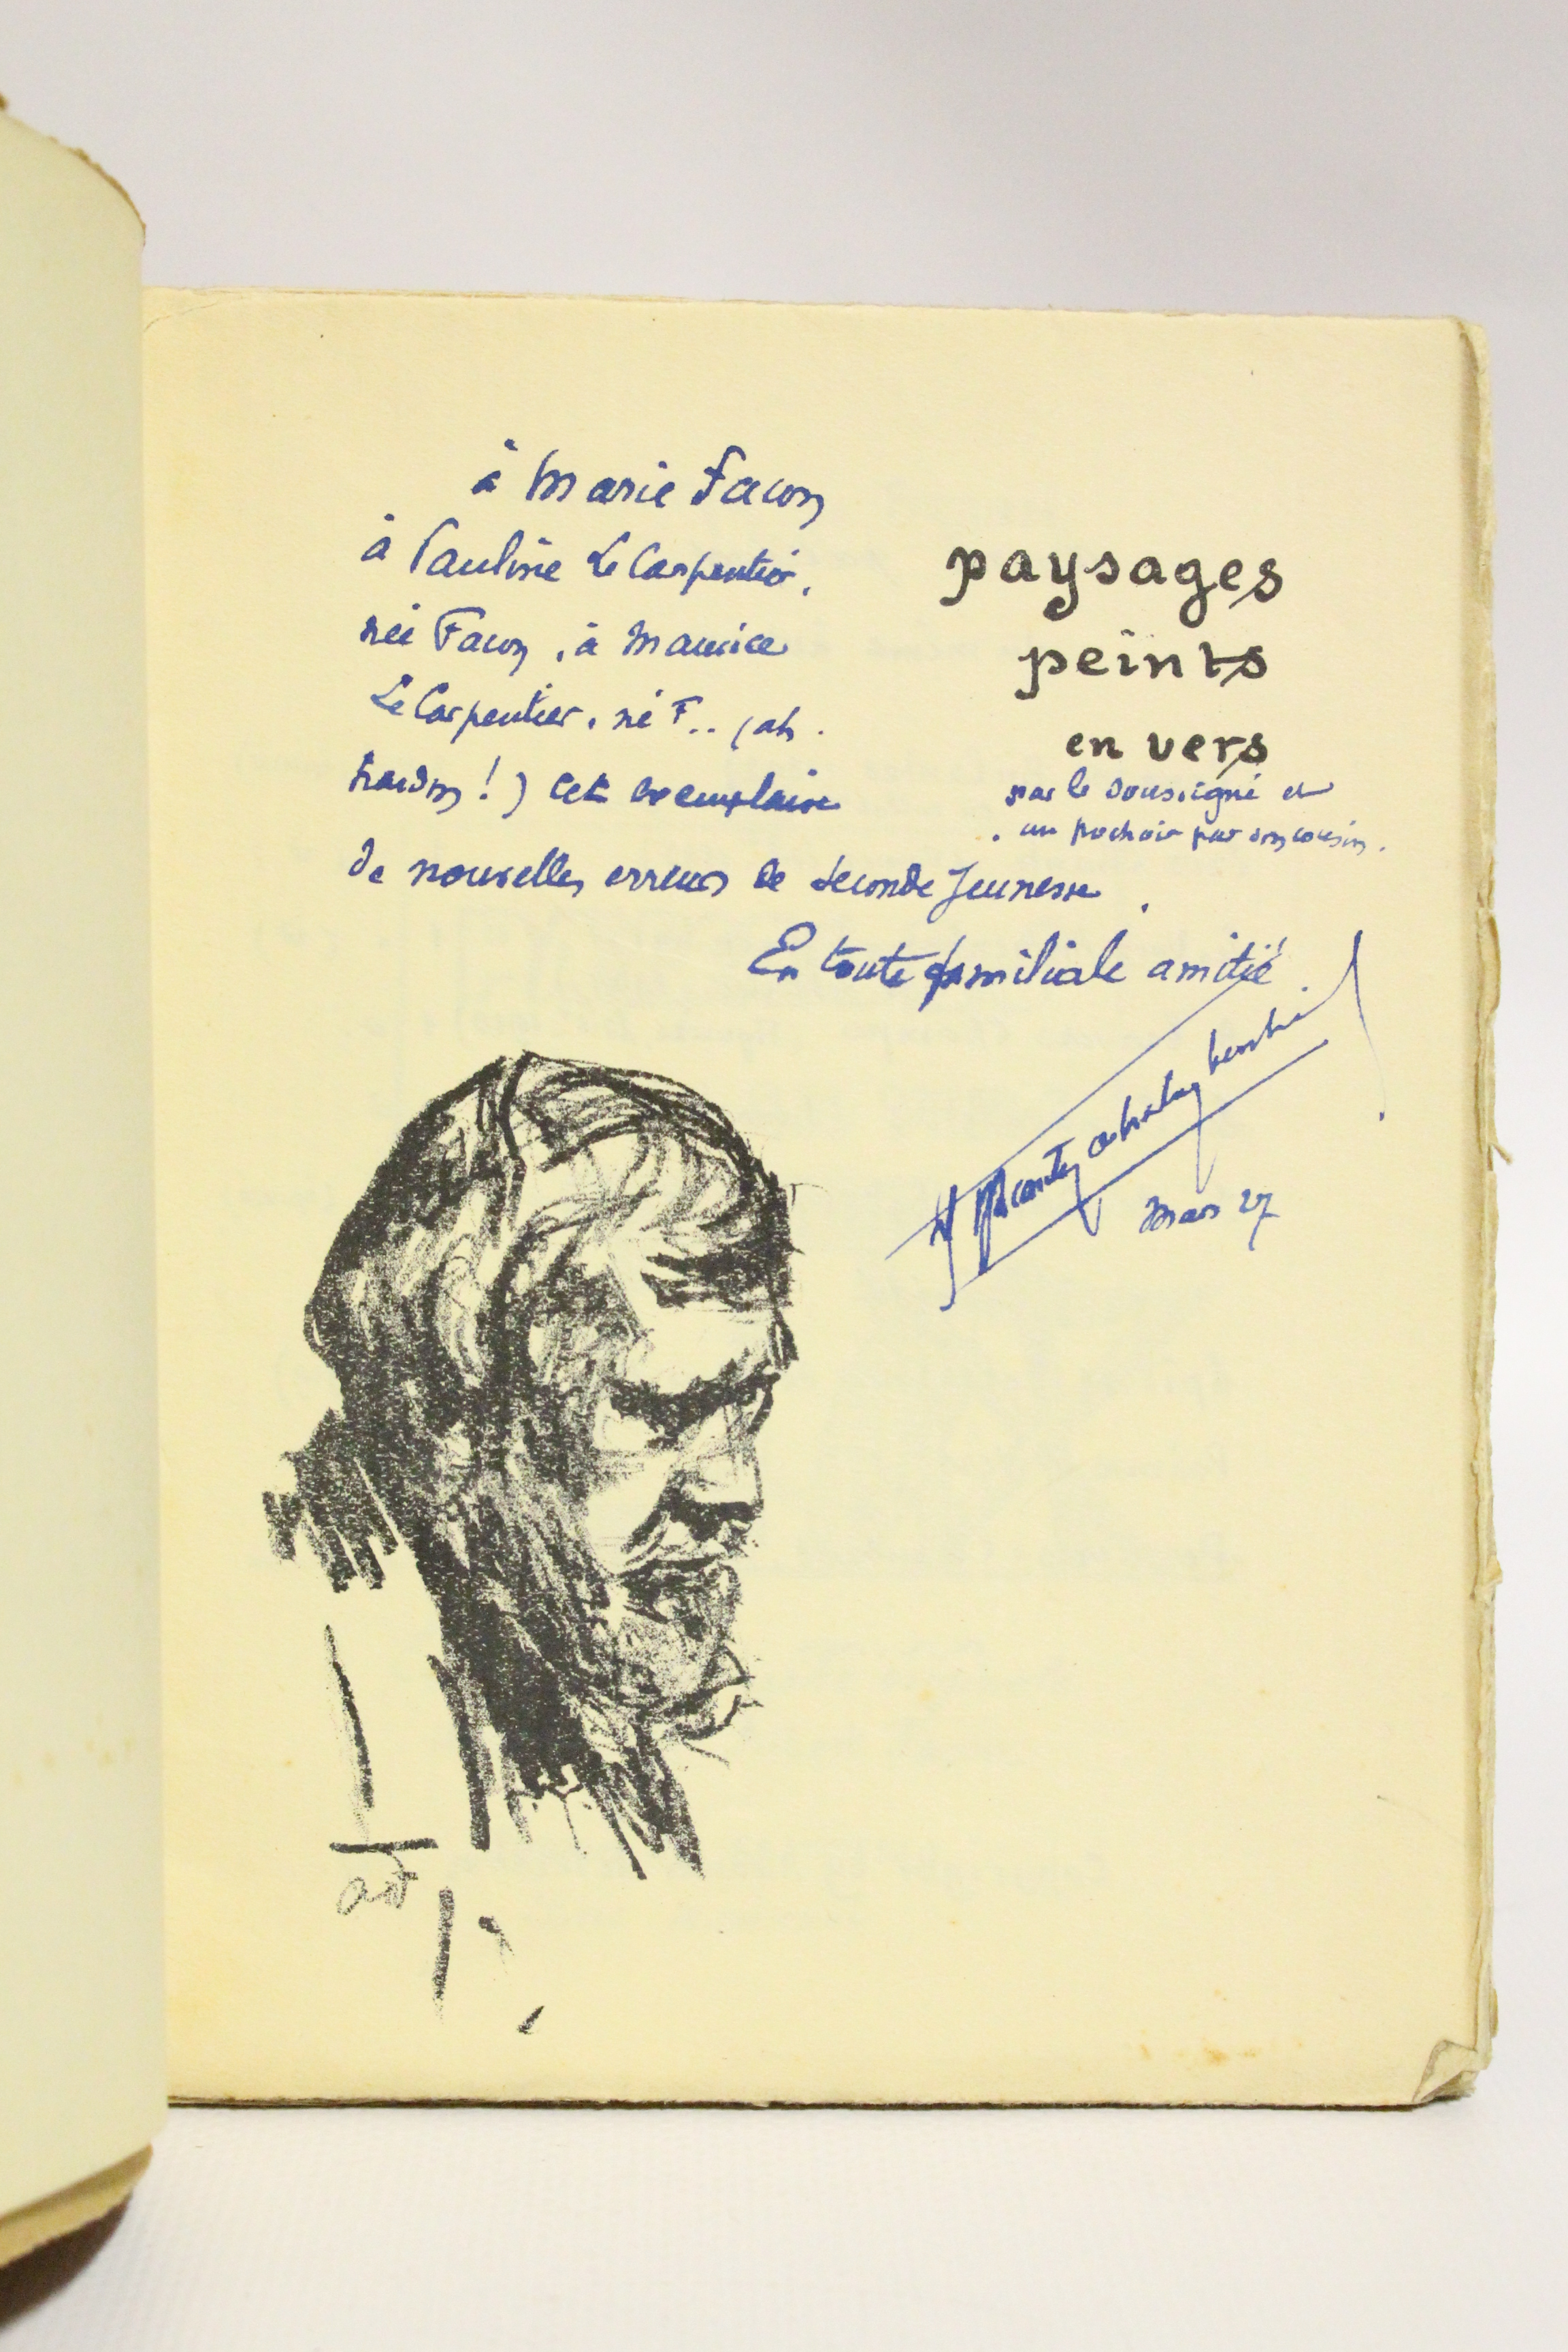 à Marie Facon
à Pauline Le Carpentier,
née Facon, à Maurice
Le Carpentier, né F.. (ah
pardon!) cet exemplaire
de nouvelles erreurs de seconde jeunesse.
En toute familiale amitié.
paysages
peints
en vers
par le soussigné et
au pochoir par son cousin.
Mars 27